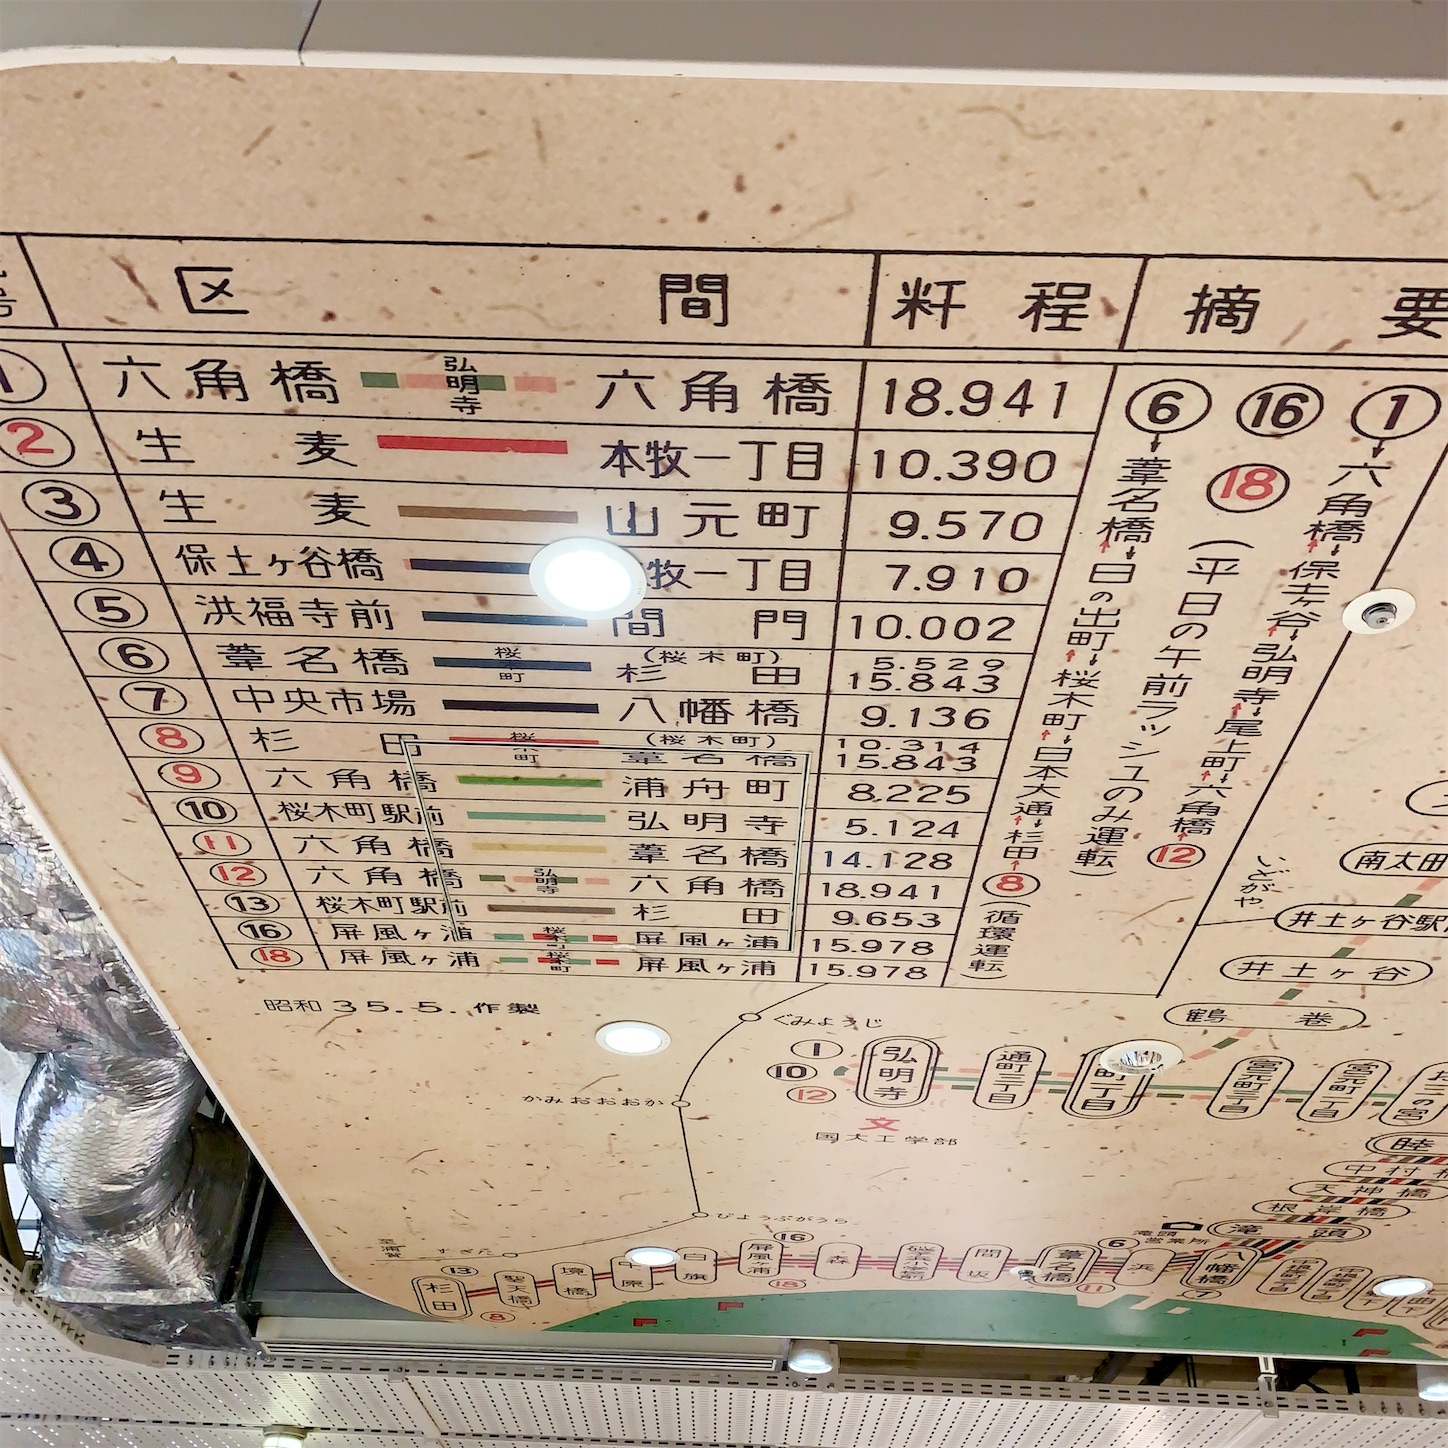 区間 粁程 摘要
1 六角橋 弘明寺 六角橋 18.941
2 生麦 本牧一丁目 10.390
3 生麦 山元町 9.570
4 保土ヶ谷橋 牧一丁目 7.910
5 洪福寺前 間門 10.002
6 葦名橋 桜木町 (桜木町) 杉田 5.529 15.843
7 中央市場 八幡橋 9.136
8 杉田 桜木町 (桜木町) 葦名橋 10.314 15.843
9 六角橋 浦舟町 8.225
10 桜木町駅前 弘明寺 5.124
11 六角橋 葦名橋 14.128
12 六角橋 弘明寺 六角橋 18.941
13 桜木町駅前 杉田 9.653
16 屏風ヶ浦 桜木町 屏風ヶ浦 15.978
18 屏風ヶ浦 桜木町 屏風ヶ浦 15.978
1 六角橋 保土ヶ谷 弘明寺 尾上町 六角橋 12
16 18 (平日の午前ラッシュのみ運転)
6 葦名橋 日の出町 桜木町 日本大通 杉田 8 (循環運転)
昭和35.5.作製
いどがや
南太田
井土ヶ谷駅
井土ヶ谷
鶴巻
ぐみょうじ
かみおおおか
びょうぶがうら
すぎた
1
10
12
弘明寺
通町三丁目
町一丁目
宮元町三丁目
宮元町一丁目
文
国大工学部
睦
中村橋
天神橋
根岸橋
滝頭
滝頭営業所
13
杉田
8
聖天橋
境橋
中原
白旗
屏風ヶ浦
16
18
森
間坂
葦名橋
6
11
浜
八幡橋
7